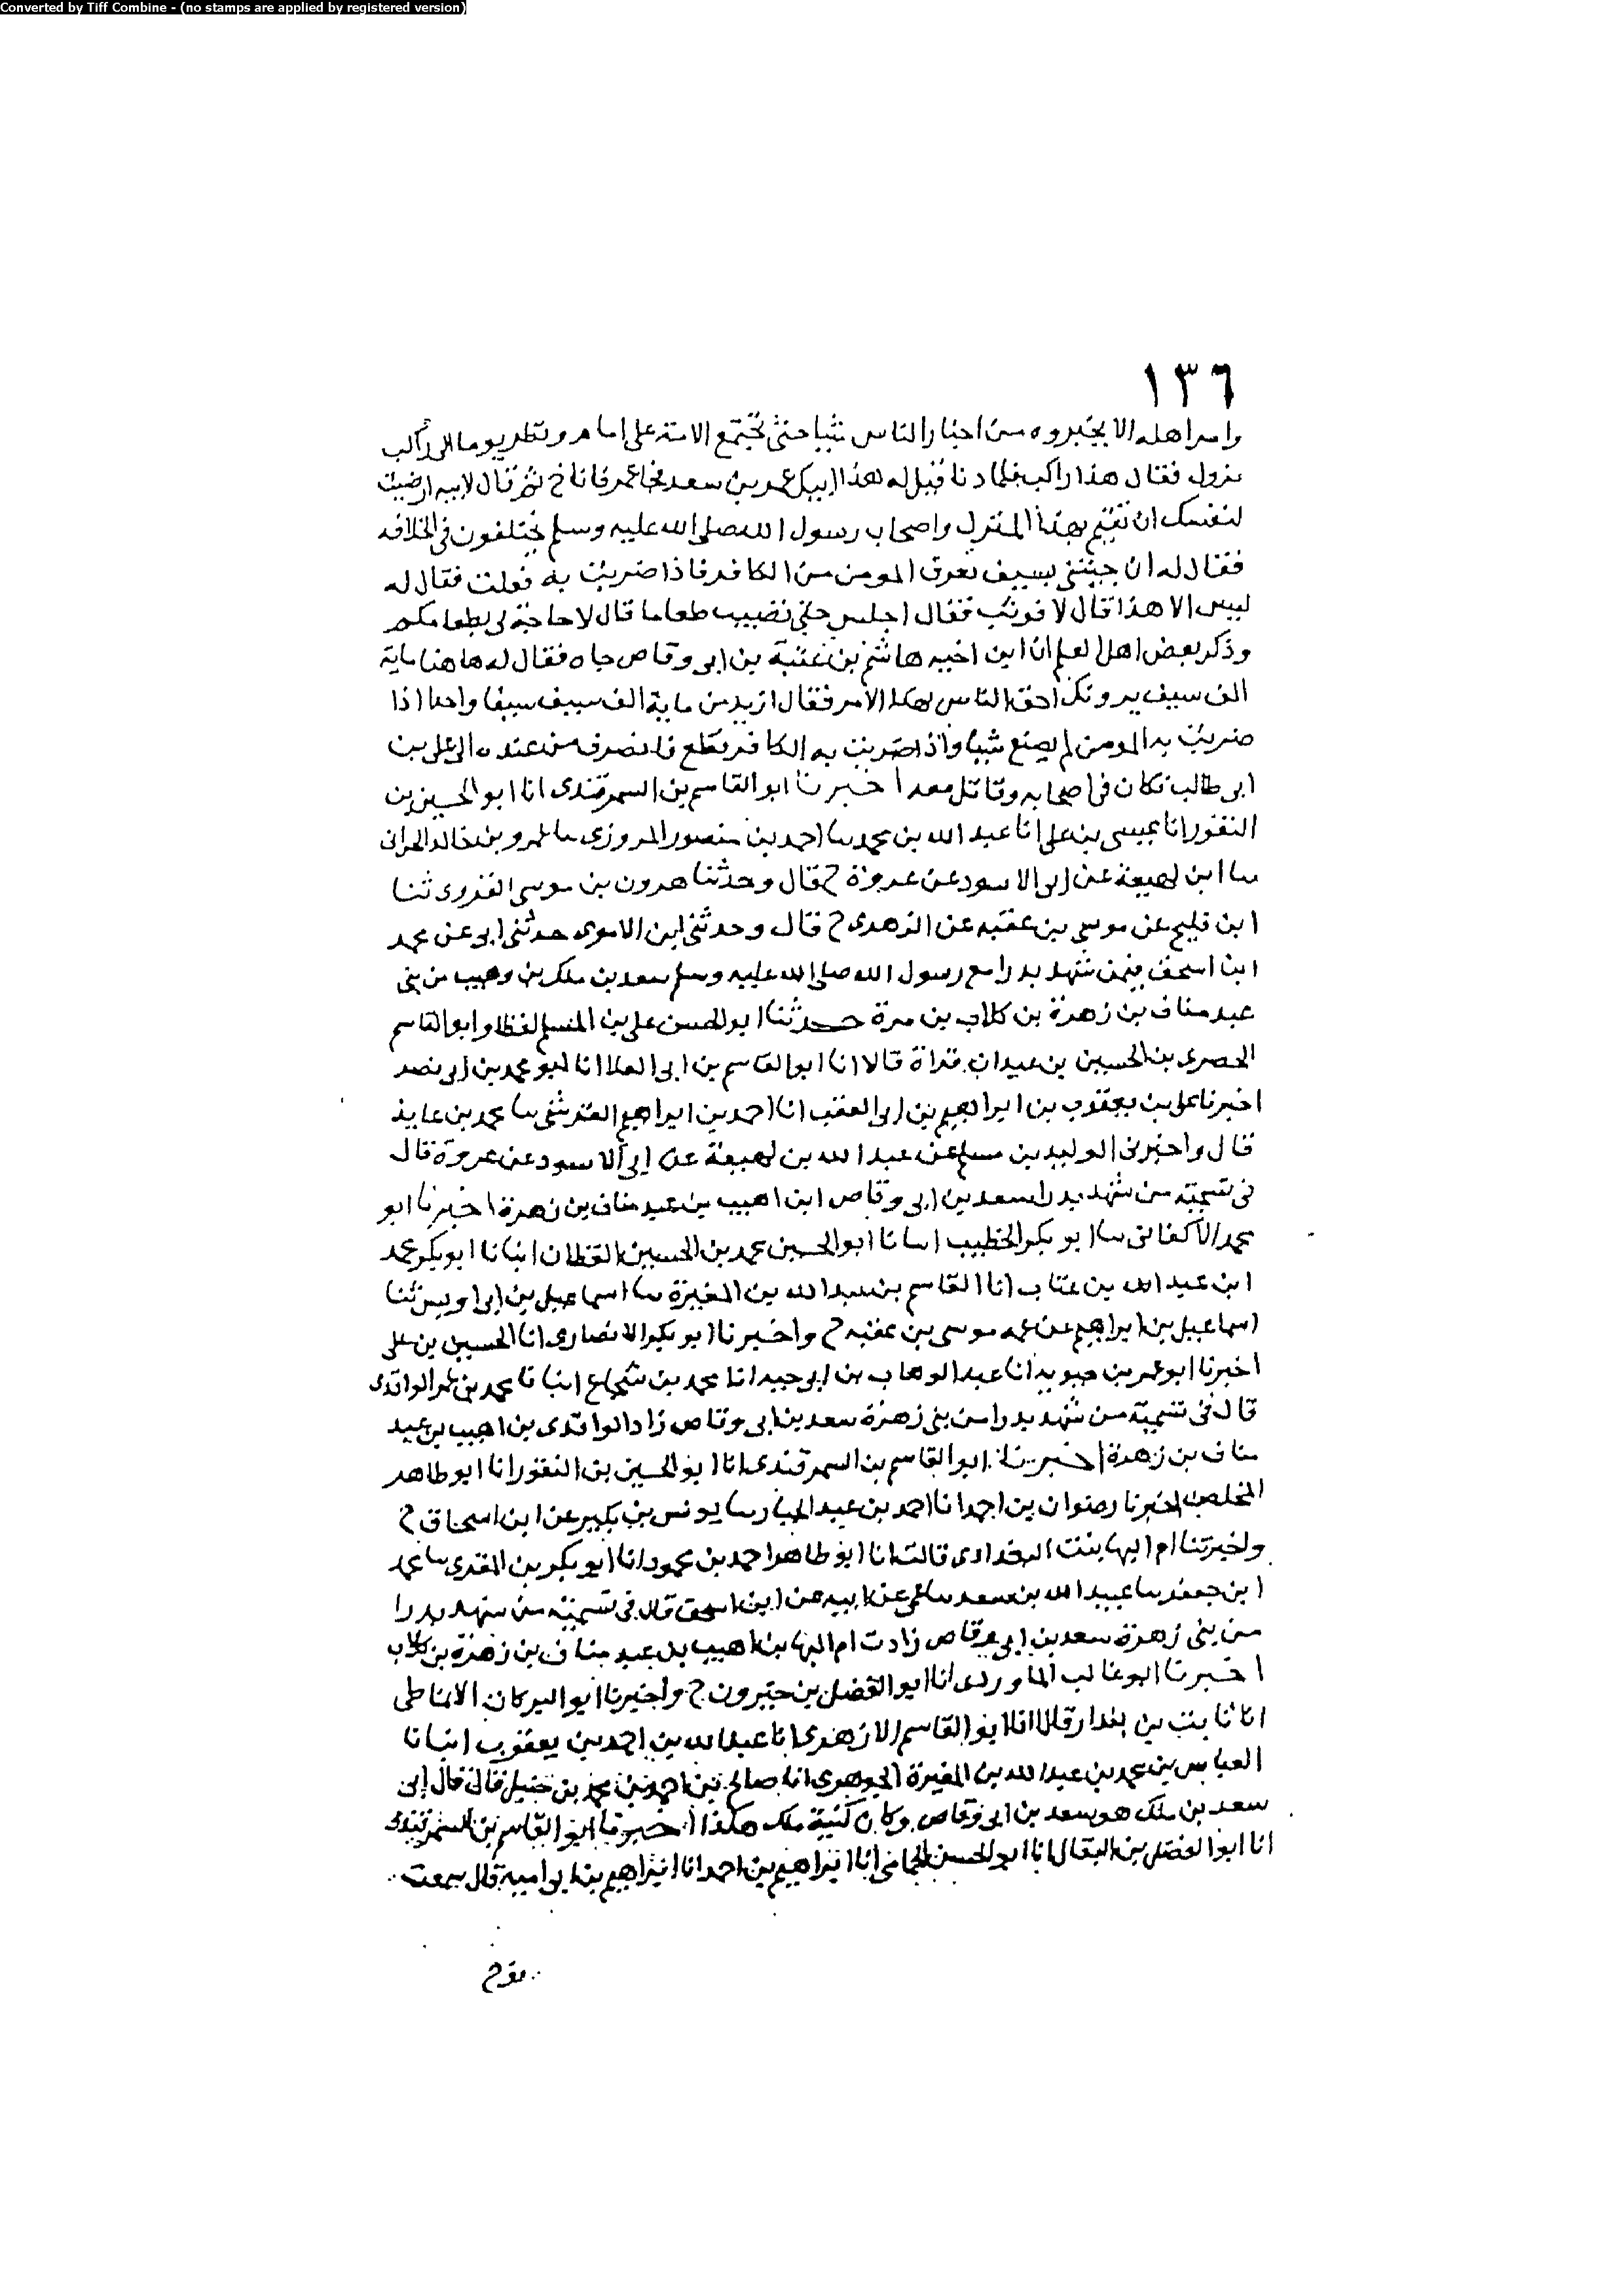 Converted by Tiff Combine - (no stamps are applied by registered version)
١٣٦
وامر اهله الا يخبروه من اخبار الناس شيا حتى تجتمع الامة على امام ونظر يوما الى راكب
يزول فقال هذا راكب فلما دنا قيل له هذا ابيك عمر بن سعد فجا عمر فاناخ ثم قال لابيه ارضيت
لنفسك ان تقيم بهذا المنزل واصحاب رسول الله صلى الله عليه وسلم يختلفون في الخلافه
فقال له ان جيتني بسيف يعرف المومن من الكافر فاذا ضربت به فعلت فقال له
ليس الا هذا قال لا فوثب فقال اجلس حتى تصيب طعاما قال لا حاجة لي بطعامكم
وذكر بعض اهل العلم ان ابن اخيه هاشم بن عتبة بن ابي وقاص جاه فقال له هاهنا ماية
الف سيف يرونك احق الناس بهذا الامر فقال اريد من ماية الف سيف سيفا واحدا اذا
ضربت به المومن لم يصنع شيا واذا ضربت به الكافر قطع فانصرف من عنده الى علي بن
ابي طالب فكان في اصحابه وقاتل معه اخبرنا ابو القاسم بن السمرقندى انا ابو الحسين بن
النقور انا عيسى بن علي انا عبد الله بن محمد سا احمد بن منصور المروزى سا عمرو بن خالد الحرانى
سا ابن لهيعة عن ابى الاسود عن عروة ح قال وحدثنا هرون بن موسى الفروى ثنا
ابن فليح عن موسى بن عقبه عن الزهرى ح قال وحدثنى ابن الاموى حدثنى ابى عن محمد
ابن اسحق فيمن شهد بدرا مع رسول الله صلى الله عليه وسلم سعد بن ملك بن وهيب من بنى
عبد مناف بن زهرة بن كلاب بن مرة حدثنا ابو الحسن على بن المسلم لفظا وابو القاسم
الحصرى بن الحسين بن عبدان قراة قالا انا ابو القاسم بن ابى العلا انا ابو محمد بن ابى نصر
اخبرنا على بن يعقوب بن ابراهيم بن ابى العقب انا احمد بن ابراهيم القرشى سا محمد بن عايذ
قال واخبرنى الوليد بن مسلم عن عبد الله بن لهيعة عن ابى الاسود عن عروة قال
فى تسمية من شهد بدرا سعد بن ابى وقاص ابن اهيب بن عبد مناف بن زهرة اخبرنا ابو
محمد الاكفانى سا ابو بكر الخطيب اسانا ابو الحسين محمد بن الحسين القطان انبانا ابو بكر محمد
ابن عبد الله بن عتاب انا القاسم بن عبد الله بن المغيرة سا اسماعيل بن ابى اويس ثنا
اسماعيل بن ابراهيم عن عمه موسى بن عقبه ح واخبرنا ابو بكر الانصارى انا الحسين بن على
اخبرنا ابو عمر بن حيويه انا عبد الوهاب بن ابى حيه انا محمد بن شجاع انبانا محمد بن عمر الواقدى
قال فى تسمية من شهد بدرا من بنى زهرة سعد بن ابى وقاص زاد الواقدى بن اهيب بن عبد
مناف بن زهرة اخبرنا ابو القاسم بن السمرقندى انا ابو الحسين بن النقور انا ابو طاهر
المخلص اخبرنا رضوان بن احمد انا احمد بن عبد الجبار سا يونس بن بكير عن ابن اسحاق ح
واخبرتنا ام البها بنت البغدادى قالت انا ابو طاهر احمد بن محمود انا ابو بكر بن المقرى سا محمد
ابن جعفر سا عبيد الله بن سعد سا عمى عن ابيه عن ابن اسحق قال فى تسمية من شهد بدرا
من بنى زهرة سعد بن ابى وقاص زادت ام البها بن اهيب بن عبد مناف بن زهرة بن كلاب
اخبرنا ابو غالب الماوردى انا ابو الفضل بن خيرون ح واخبرنا ابو البركات الانماطى
انا ثابت بن بندار قالا انا ابو القاسم الازهرى انا عبد الله بن احمد بن يعقوب انبانا
العباس بن محمد بن عبد الله بن المغيرة الجوهرى انا صالح بن احمد بن محمد بن حنبل قال قال ابى
سعد بن ملك هو سعد بن ابى وقاص وكان كنية ملك هكذا اخبرنا ابو القاسم بن السمرقندى
انا ابو الفضل بن البقال انا ابو الحسن الحمامى انا ابراهيم بن احمد انا ابراهيم بن ابى امية قال سمعت
نوح